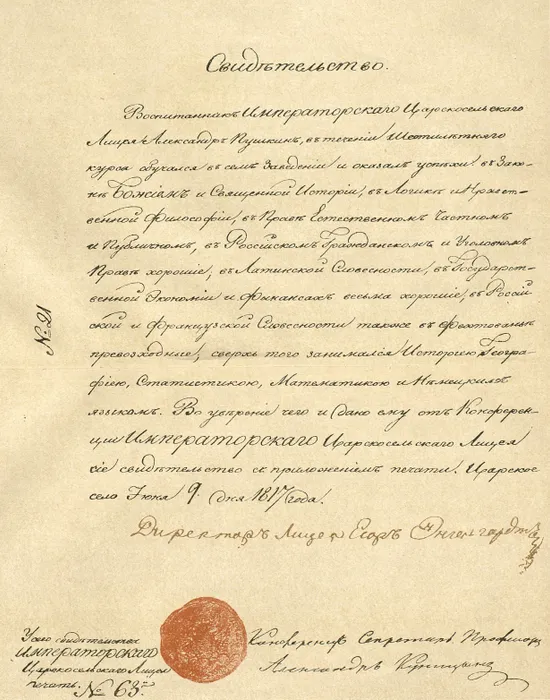 Свидѣтельство.
Воспитанникъ Императорскаго Царскосельскаго
Лицея Александръ Пушкинъ, въ теченіи Шестилѣтняго
курса обучался въ семъ Заведеніи и оказалъ успѣхи: въ Зако-
нѣ Божіемъ и Священной Исторіи, въ Логикѣ и Нравст-
венной Философіи, въ Правѣ Естественномъ Частномъ
и Публичномъ, въ Россійскомъ Гражданскомъ и Уголовномъ
Правѣ хорошіе, въ Латинской Словесности, въ Государст-
венной Экономіи и Финансахъ весьма хорошіе, въ Россій-
ской и Французской Словесности также въ Фехтованьѣ
превосходные, сверхъ того занимался Исторіею, Геогра-
фіею, Статистикою, Математикою и Нѣмецкимъ
языкомъ. Во увѣреніе чего и дано ему отъ Конферен-
ціи Императорскаго Царскосельскаго Лицея
сіе свидѣтельство съ приложеніемъ печати. Царское
село Іюня 9. дня 1817 года.
№ 21
Директоръ Лицея Егоръ Энгельгардтъ
У сего свидѣтельства
Императорскаго
Царскосельскаго Лицея
печать. № 63.
Конференцъ Секретарь Профессоръ
Александръ Куницынъ